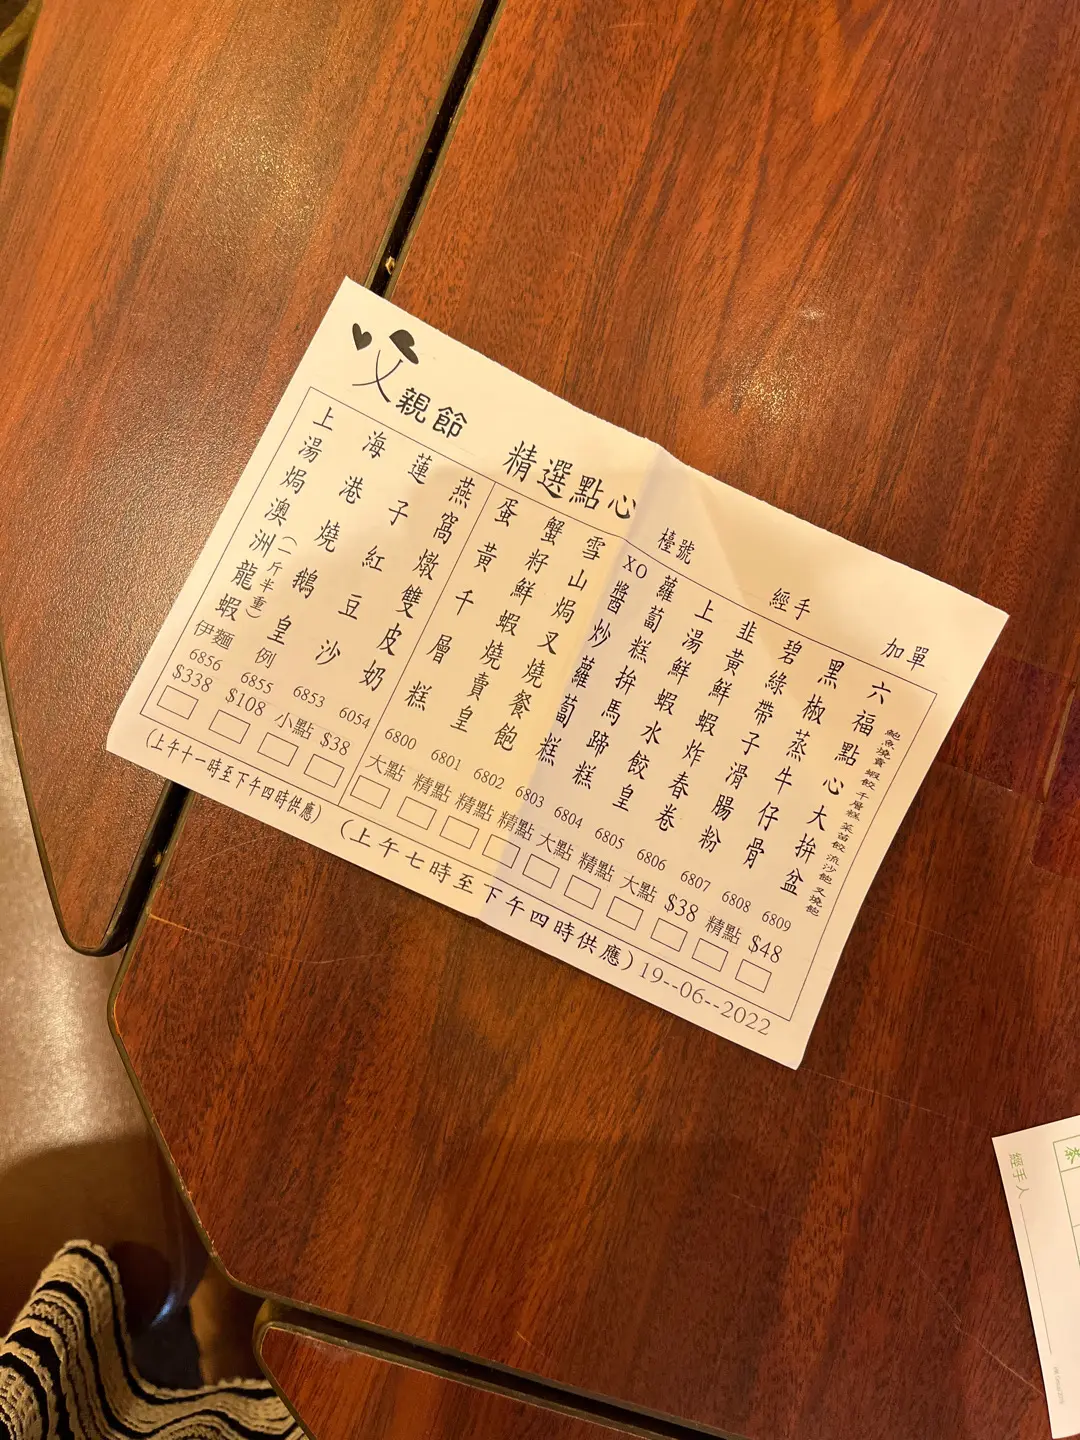 父親節
精選點心
檯號
經手
加單
鮑魚燒賣 蝦餃 千層糕 菜苗餃 流沙飽 叉燒飽
六福點心大拚盆
6809
$48
黑椒蒸牛仔骨
6808
精點
碧綠帶子滑腸粉
6807
$38
韭黃鮮蝦炸春卷
6806
大點
上湯鮮蝦水餃皇
6805
精點
蘿蔔糕拚馬蹄糕
6804
大點
XO醬炒蘿蔔糕
6803
精點
雪山焗叉燒餐飽
6802
精點
蟹籽鮮蝦燒賣皇
6801
精點
蛋黃千層糕
6800
大點
燕窩燉雙皮奶
6054
$38
蓮子紅豆沙
6853
小點
海港燒鵝皇
例
6855
$108
上湯焗澳洲龍蝦
(一斤半重)
伊麵
6856
$338
(上午十一時至下午四時供應)
(上午七時至下午四時供應)
19--06--2022
經手人
茶